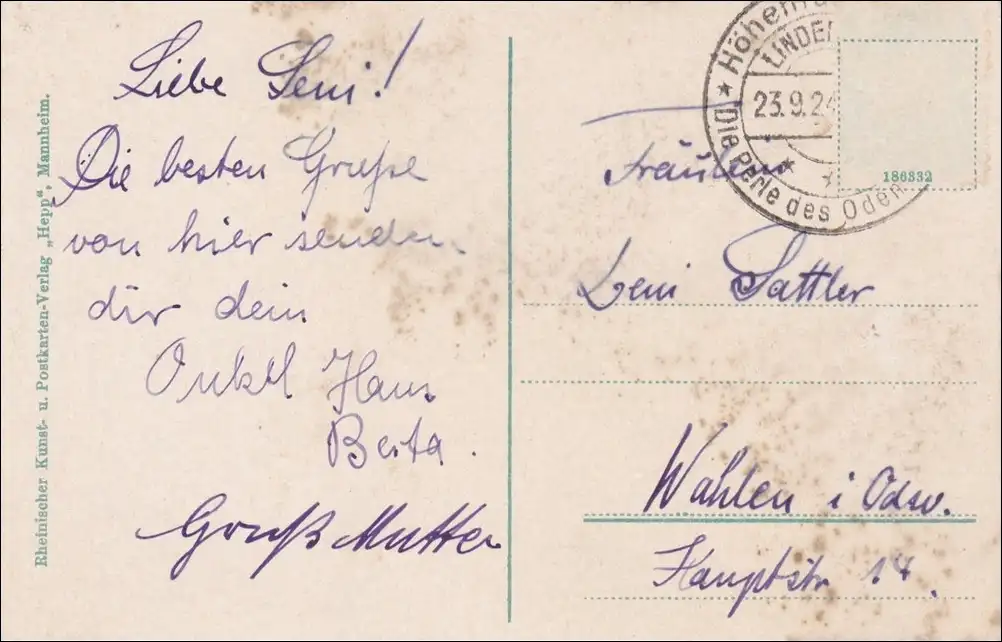 Liebe Leni!
Die besten Grüße
von hier senden
dir dein
Onkel Hans
Berta.
Gruß Mutter
Rheinischer Kunst- u. Postkarten-Verlag „Hepp“, Mannheim.
LINDEN
23.9.24
★ Die Perle des Oden
186332
Fräulein
Leni Sattler
Wahlen i Odw.
Hauptstr 14.